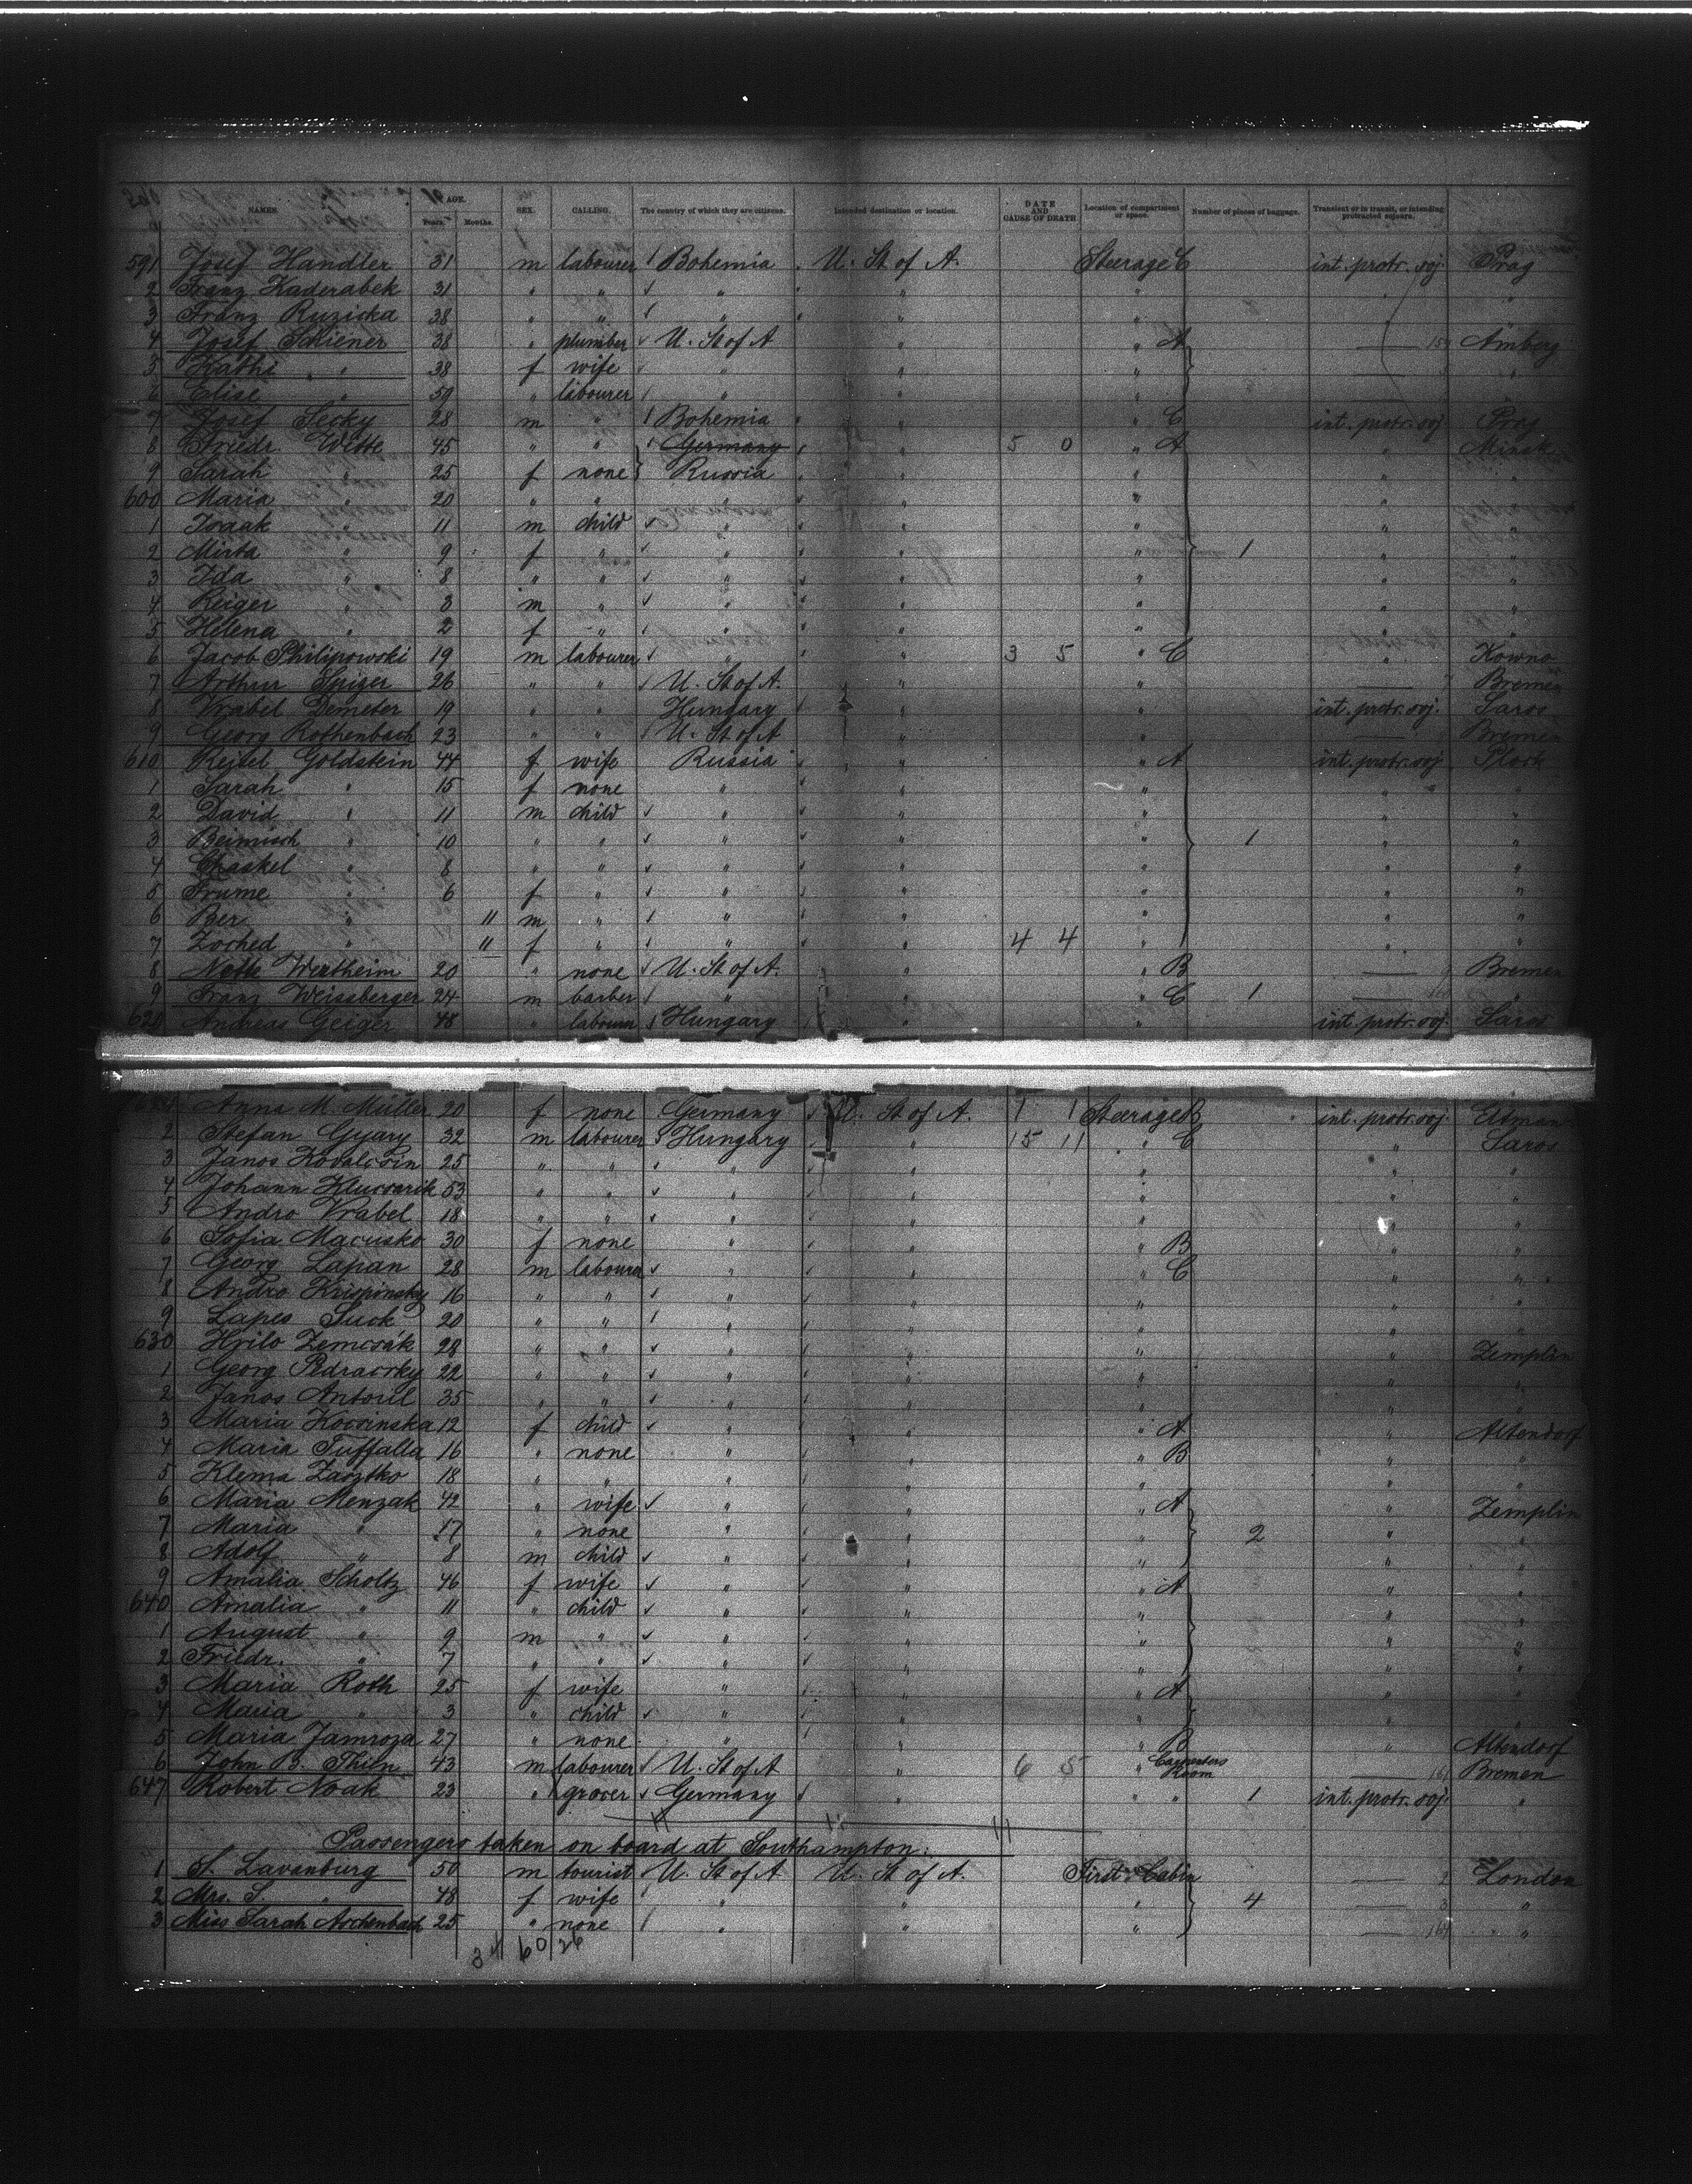 NAMES. AGE. Years. Months. SEX. CALLING. The country of which they are citizens. Intended destination or location. DATE AND CAUSE OF DEATH Location of compartment or space. Number of pieces of baggage. Transient or in transit, or intending protracted sojourn.
591 Josef Handler 31 m labourer Bohemia U. St of A. Steerage C int. protr. soj. Prag
2 Franz Kaderabek 31 " " " " " " "
3 Franz Ruzicka 38 " " " " "
4 Josef Schiener 38 " plumber U. St of A " " A Amberg
5 Käthi " 38 f wife " " " "
6 Elise " 59 " labourer " " "
7 Josef Secky 28 m " Bohemia " " C int. protr. soj Prag
8 Friedr. Witte 45 " " Germany " 5 0 " A " Minsk
9 Sarah " 25 f none Russia " " " "
600 Maria " 20 " " " " " " "
1 Isaak " 11 m child " " " " "
2 Mirta " 9 f " " " " 1 " "
3 Ida " 8 " " " " " " "
4 Reiger " 3 m " " " " " "
5 Helena " 2 f " " " " " "
6 Jacob Philipowski 19 m labourer " " 3 5 " C " Kowno
7 Arthur Spiger 26 " " U. St of A. " " Bremen
8 Vrabel Demeter 19 " " Hungary " " int. protr. soj. Saros
9 Georg Rothenbach 23 " " U. St of A " " Bremen
610 Reitel Goldstein 44 f wife Russia " " A int. protr. soj Plock
1 Sarah " 15 f none " " " " "
2 David " 11 m child " " " " "
3 Beimisch " 10 " " " " " 1 " "
4 Chaskel " 8 " " " " " " "
5 Frume " 6 f " " " " " "
6 Ber " 11 m " " " " " "
7 Zoched " 11 f " " " 4 4 " " "
8 Nette Wertheim 20 " none U. St of A. " " B Bremen
9 Franz Weissberger 24 m barber " " " C 1 "
620 Andreas Geiger 48 " labourer Hungary " " int. protr. soj. Saros
Anna M. Müller 20 f none Germany U. St of A. 1 1 Steerage B int. protr. soj.
2 Stefan Gyary 32 m labourer Hungary " 15 11 " C " Saros
3 Janos 25 " " " " " " "
4 Johann Klucsarik 53 " " " " " " "
5 Andro Vrabel 18 " " " " " " "
6 Sofia Macusko 30 f none " " " B " "
7 Georg Lapan 28 m labourer " " " C " "
8 Andro Krispinsky 16 " " " " " " "
9 Lapes Suck 20 " " " " " " "
630 Hrilo Zemcsák 28 " " " " " " Zemplin
1 Georg 22 " " " " " " "
2 Janos 35 " " " " " " "
3 Maria Kocsinska 12 f child " " " A " Altendorf
4 Maria Tuffalla 16 " none " " " B " "
5 Klema 18 " " " " " " "
6 Maria Menzak 42 " wife " " " A " Zemplin
7 Maria " 17 " none " " " 2 " "
8 Adolf " 8 m child " " " " "
9 Amalia Scholtz 46 f wife " " " A " "
640 Amalia " 11 " child " " " " "
1 August " 9 m " " " " " "
2 Friedr. " 7 " " " " " " "
3 Maria Roth 25 f wife " " " A " "
4 Maria " 3 " child " " " " "
5 Maria Jamroza 27 " none " " " B " Altendorf
6 John B. Thien 43 m labourer U. St of A " 6 5 " Carpenters Room 161 Bremen
647 Robert Noak 23 " grocer Germany " " " 1 int. protr. soj. "
Passengers taken on board at Southampton:
1 S. Lavanburg 50 m tourist U. St of A U. St of A. First Cabin 2 London
2 Mrs. S. " 48 f wife " " " 4 3 "
3 Miss Sarah Aschenbach 25 " none " " " 164 "
34 60 26